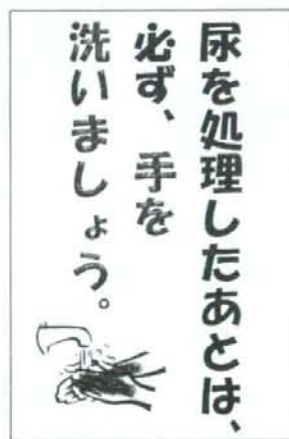 尿を処理したあとは、
必ず、手を
洗いましょう。